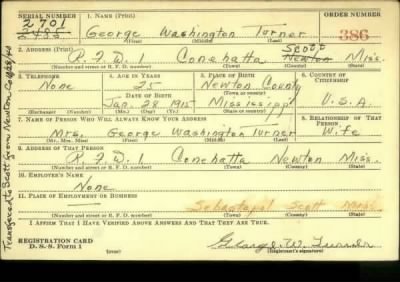 SERIAL NUMBER 1. NAME (Print) ORDER NUMBER
2701
2485 George Washington Turner 386
(First) (Middle) (Last)
2. ADDRESS (Print) Scott
R.F.D. 1 Conehatta Newton Miss.
(Number and street or R. F. D. number) (Town) (County) (State)
3. TELEPHONE 4. AGE IN YEARS 5. PLACE OF BIRTH 6. COUNTRY OF CITIZENSHIP
None 25 Newton County
DATE OF BIRTH (Town or county)
Jan. 28 1915 Mississippi U.S.A.
(Exchange) (Number) (Mo.) (Day) (Yr.) (State or country)
7. NAME OF PERSON WHO WILL ALWAYS KNOW YOUR ADDRESS 8. RELATIONSHIP OF THAT PERSON
Mrs. George Washington Turner Wife
(Mr., Mrs., Miss) (First) (Middle) (Last)
9. ADDRESS OF THAT PERSON
R.F.D. 1 Conehatta Newton Miss.
(Number and street or R. F. D. number) (Town) (County) (State)
10. EMPLOYER'S NAME
None
11. PLACE OF EMPLOYMENT OR BUSINESS
Sebastapol Scott
(Number and street or R. F. D. number) (Town) (County) (State)
I AFFIRM THAT I HAVE VERIFIED ABOVE ANSWERS AND THAT THEY ARE TRUE.
REGISTRATION CARD
D. S. S. Form 1 George W. Turner
(Registrant's signature)
Transferred to Scott from Newton Co.